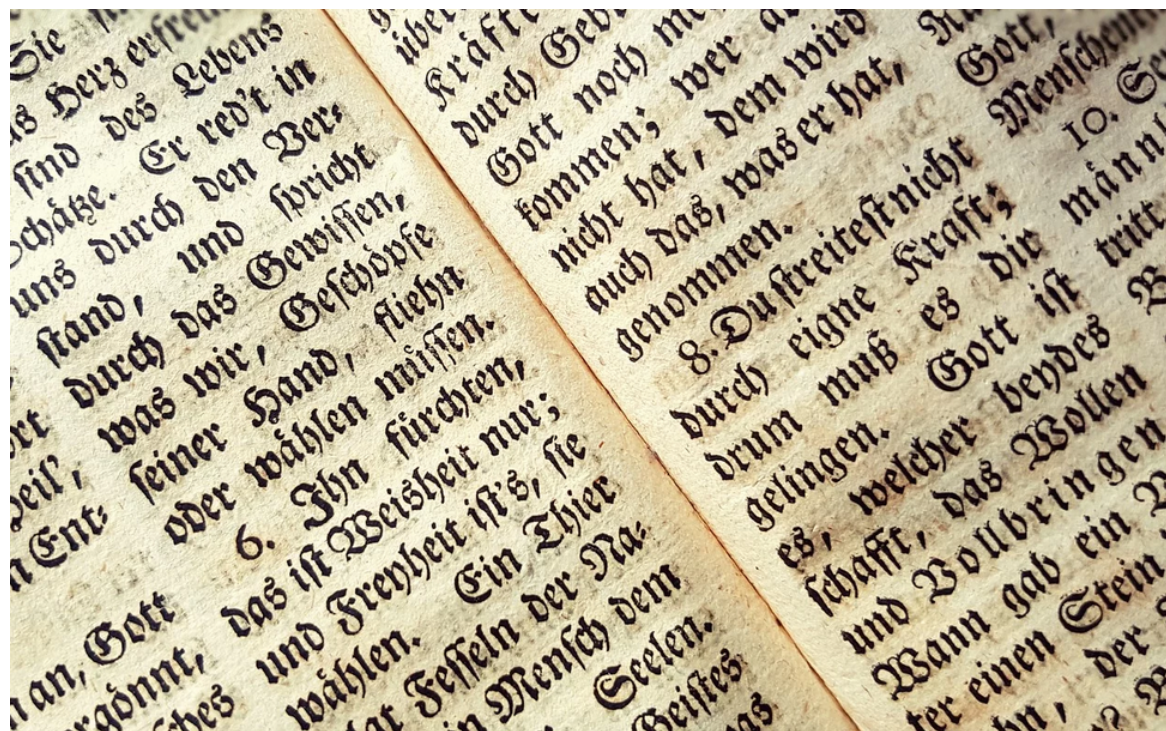 Ent⸗
an, Gott
Sie
Herz erfreun
ſind des Lebens
Schätze. Er red't in
uns durch den Ver⸗
ſtand, und ſpricht
durch das Gewiſſen,
was wir, Geſchöpfe
ſeiner Hand, fliehn
oder wählen müſſen.
6. Ihn fürchten,
das iſt Weisheit nur;
und Freyheit iſt's, ſie
wählen. Ein Thier
Feſſeln der Na⸗
Menſch dem
Seelen.
Geiſtes
durch
Gott noch
kommen; wer
nicht hat, dem wird
auch das, was er hat,
genommen.
8. Du ſtreiteſt nicht
durch eigne Kraft;
drum muß es dir
gelingen. Gott iſt
es, welcher beydes
ſchafft, das Wollen
und Vollbringen
Wann gab ein
ter einen Stein
der
Gott,
10.
tritt